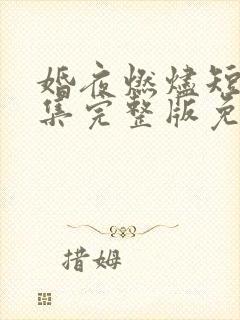 婚夜燃烬短
集完整版免
措姆